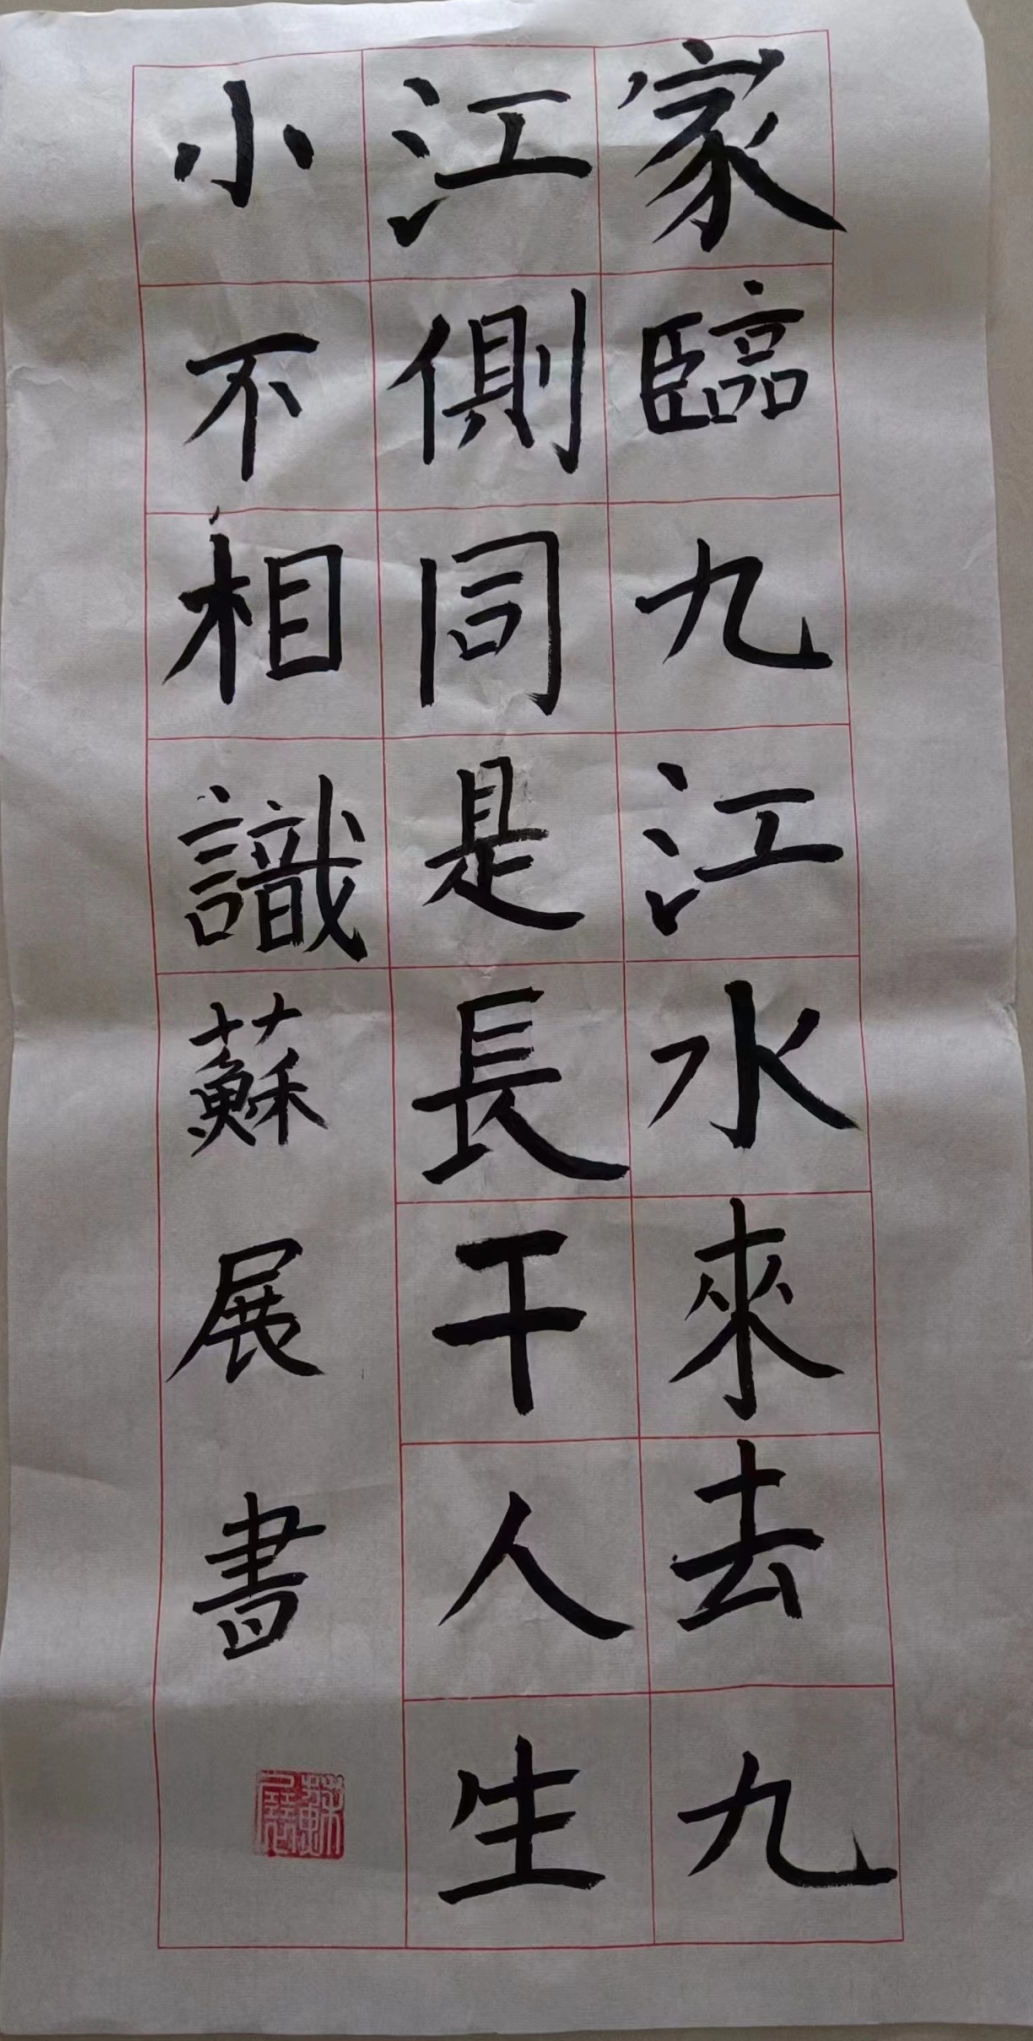 家臨九江水來去九
江側同是長干人生
小不相識蘇展書
蘇展